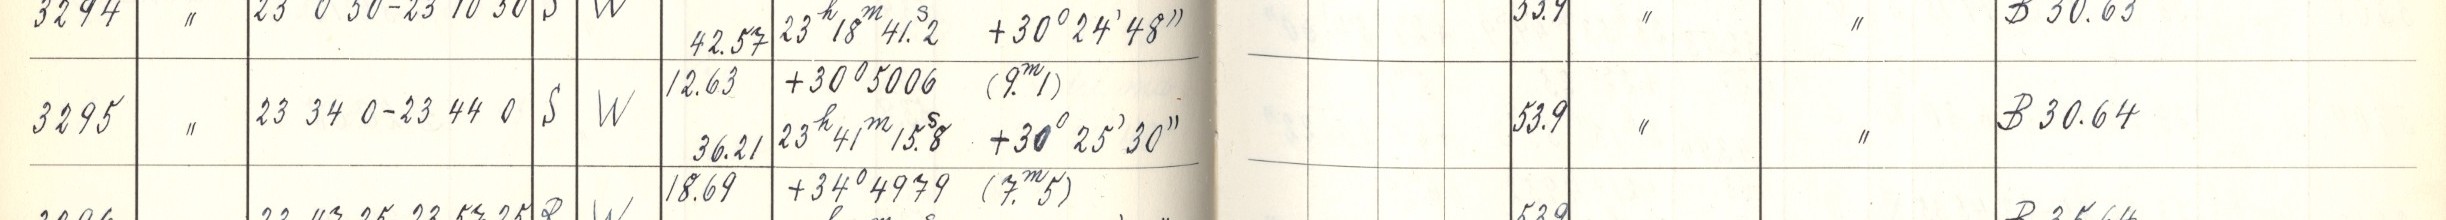 3294 " 23 0 30-23 10 30 S W 42.57 23h 18m 41.s2 +30° 24' 48" 53.9 " " B 30.63
12.63 +30° 5006 (9.m1)
3295 " 23 34 0-23 44 0 S W 53.9 " " B 30.64
36.21 23h 41m 15.s8 +30° 25' 30"
18.69 +34° 4979 (7.m5)
3296 23 47 25-23 57 25 R W 53.9 B 35.64